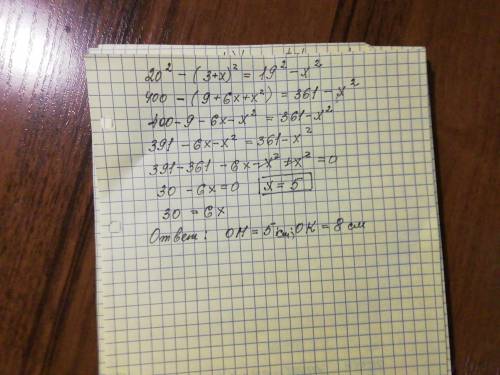 20² - (3+x)² = 19² - x²
400 - (9+6x+x²) = 361 - x²
400 - 9 - 6x - x² = 361 - x²
391 - 6x - x² = 361 - x²
391 - 361 - 6x - x² + x² = 0
30 - 6x = 0 x = 5
30 = 6x
Ответ: OH = 5 см; OK = 8 см